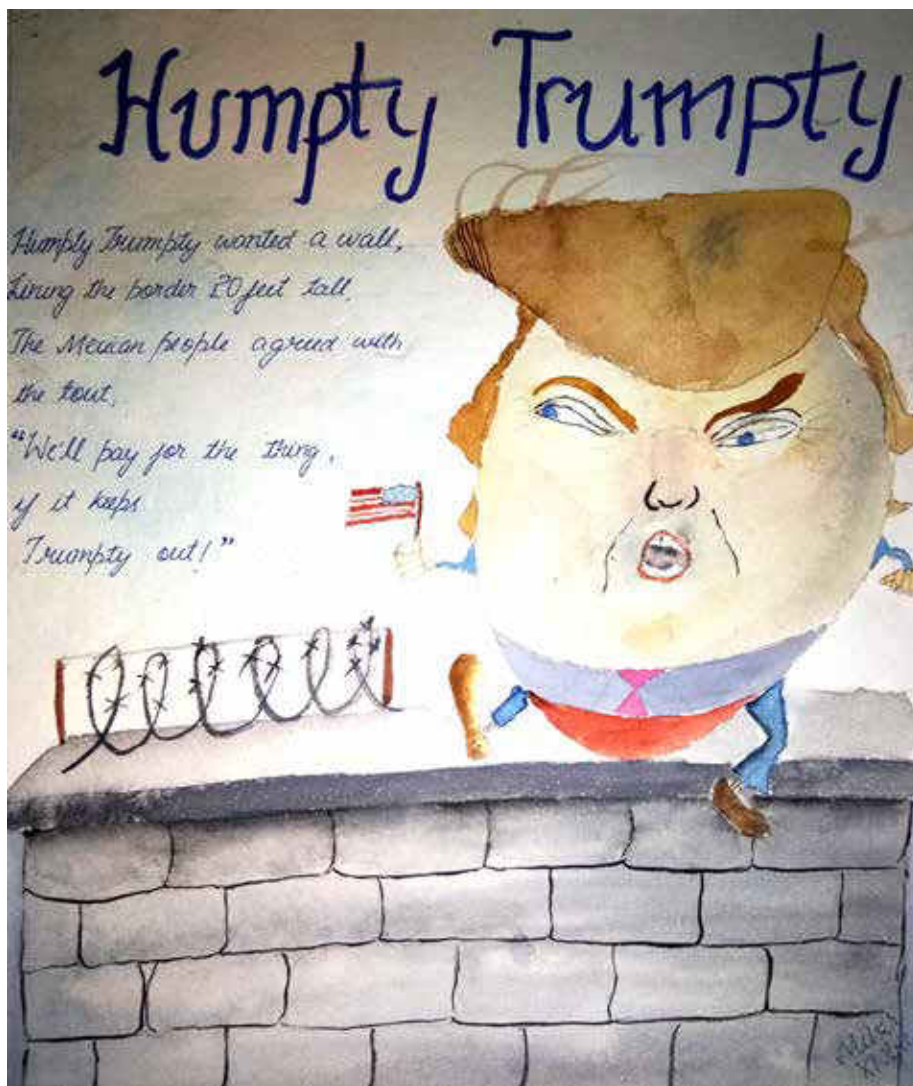 Humpty Trumpty
Humpty Trumpty wanted a wall,
Lining the border 20 feet tall.
The Mexican people agreed with
the tout,
"We'll pay for the thing,
if it keeps
Trumpty out!"